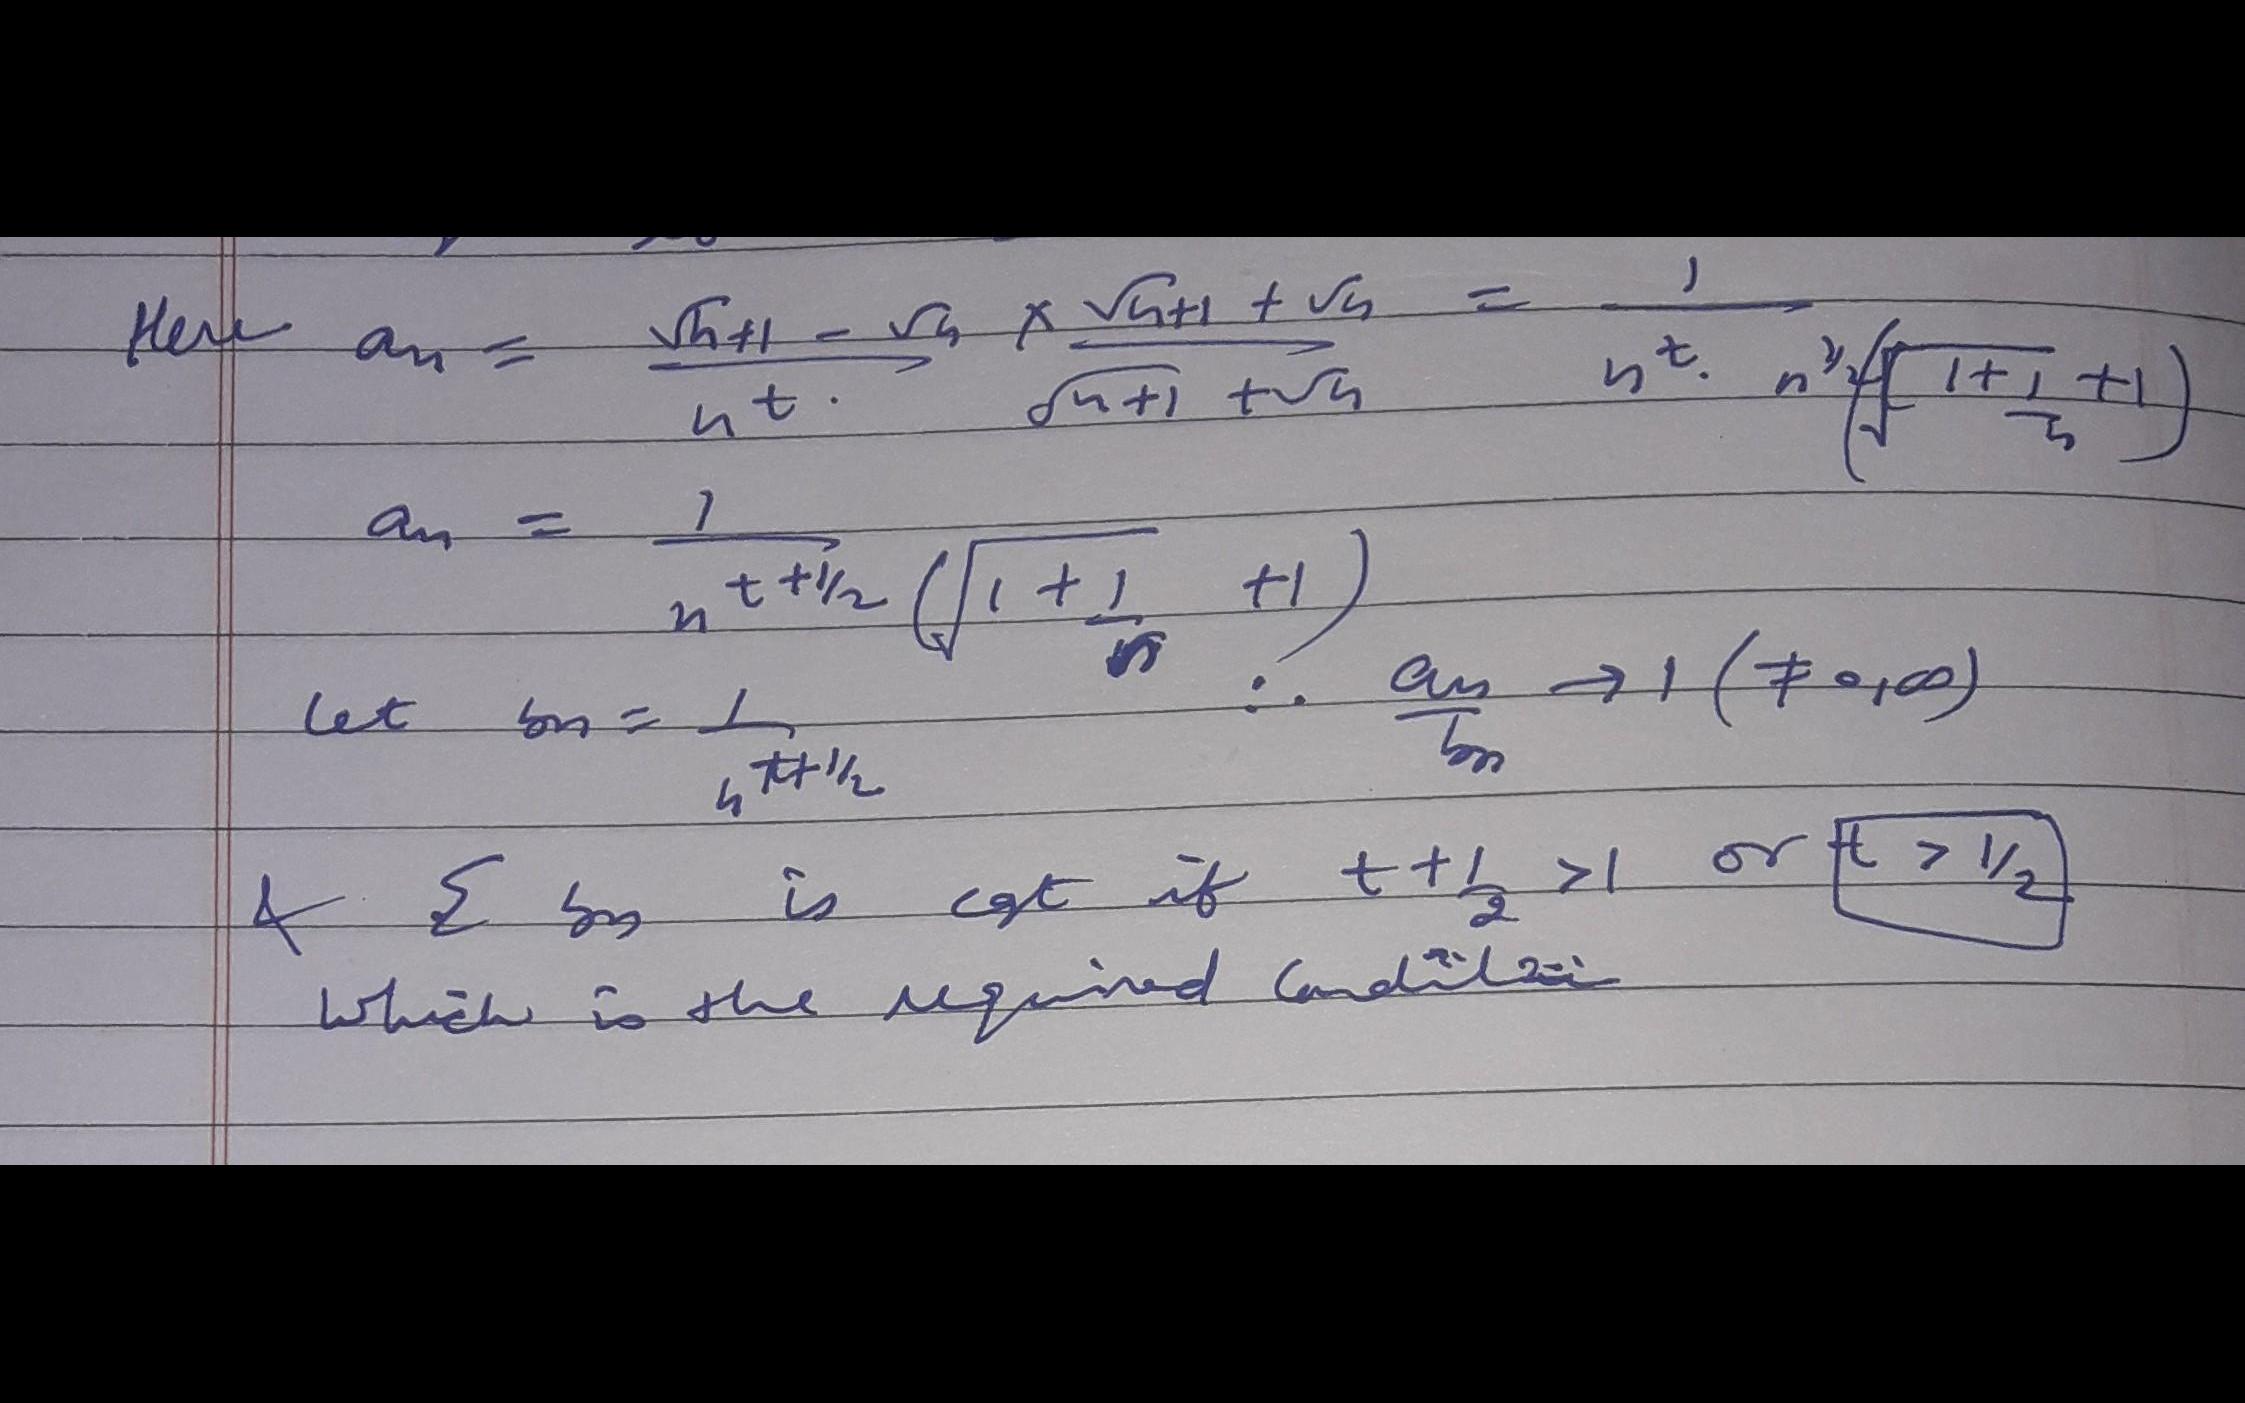 Here an = √n+1 - √n / n^t . × √n+1 + √n / √n+1 + √n = 1 / n^t . n^1/2 (√1+1/n +1)
an = 1 / n^t+1/2 (√1+1/n +1)
let bn = 1 / n^t+1/2 ∴ an/bn → 1 (≠ 0,∞)
& Σ bn is cgt if t+1/2 >1 or t > 1/2
which is the required condition